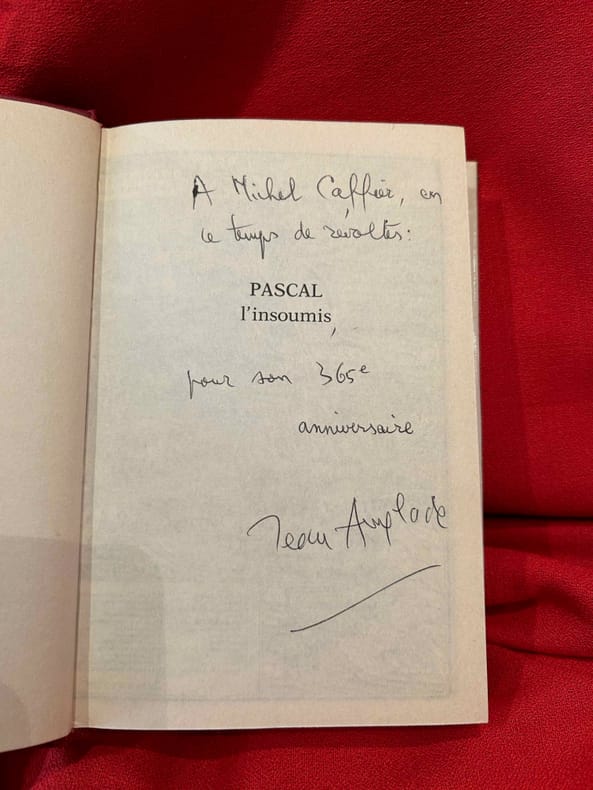 A Michel Caffier, en
ce temps de révoltes:
PASCAL
l'insoumis,
pour son 365e
anniversaire
Jean Anglade